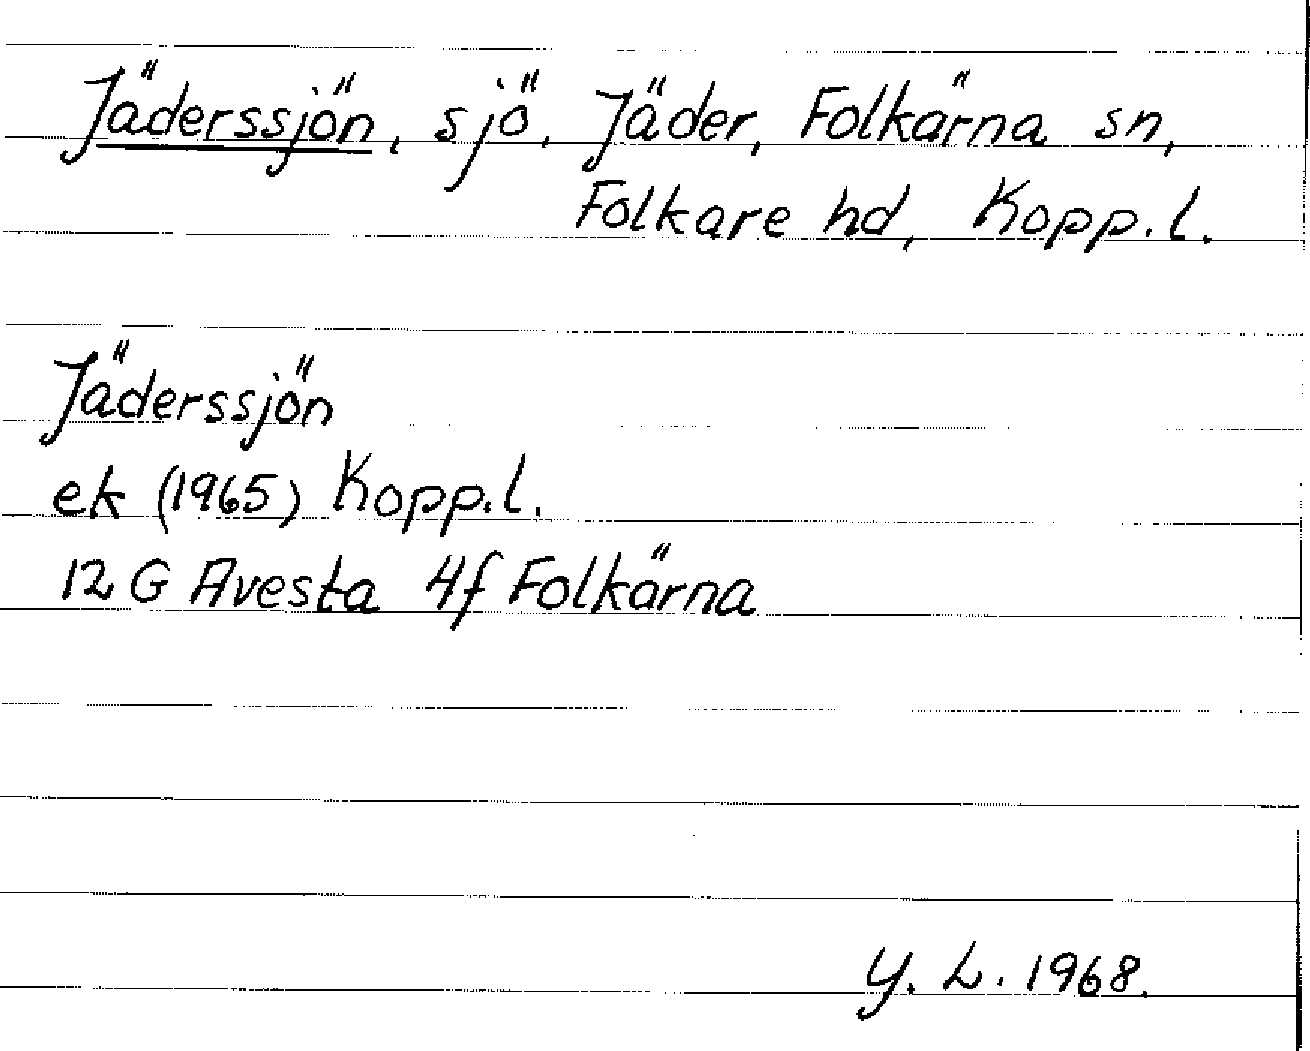 Jäderssjön, sjö, Jäder, Folkärna sn,
Folkare hd, Kopp.l.
Jäderssjön
ek (1965) Kopp.l.
12 G Avesta 4f Folkärna
Y. L. 1968.